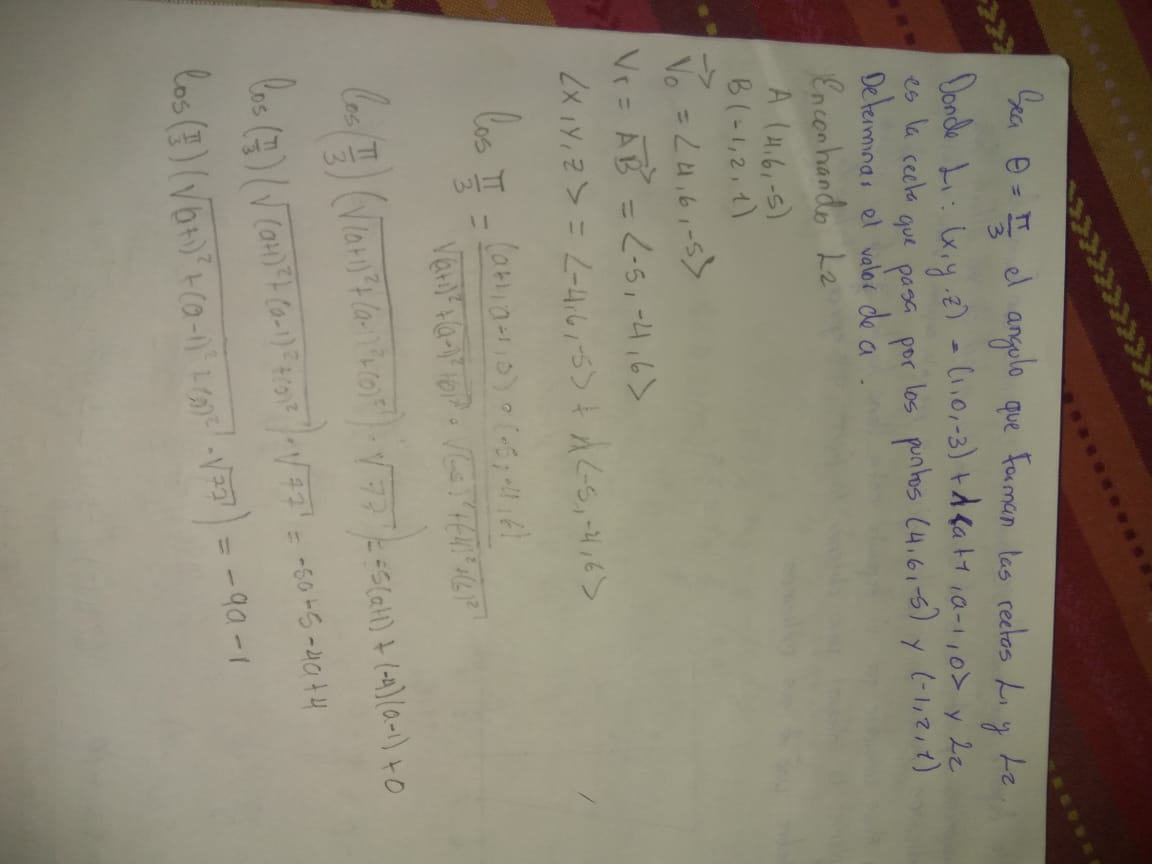 Sea θ = π/3 el angulo que forman las rectas L₁ y L₂,
Donde L₁: (x,y,z) = (1,0,-3) + λ<a+1, a-1, 0> y L₂
es la recta que pasa por los puntos (4,6,-5) y (-1,2,1)
Determinar el valor de a.
Encontrando L₂
A (4,6,-5)
B (-1,2,1)
V₀ = <4,6,-5>
Vr = AB = <-5,-4,6>
<x,y,z> = <-4,6,-5> + λ<-5,-4,6>
Cos π/3 = (a+1, a-1, 0) • (-5,-4,6) / √(a+1)²+(a-1)²+(0)² • √(-5)²+(-4)²+(6)²
Cos(π/3) (√(a+1)²+(a-1)²+(0)²) · √77) = -5(a+1) + (-4)(a-1) + 0
Cos(π/3) (√(a+1)²+(a-1)²+(0)²) · √77 = -5a+5-4a+4
Cos(π/3) (√(a+1)²+(a-1)²+(0)² · √77) = -9a-1